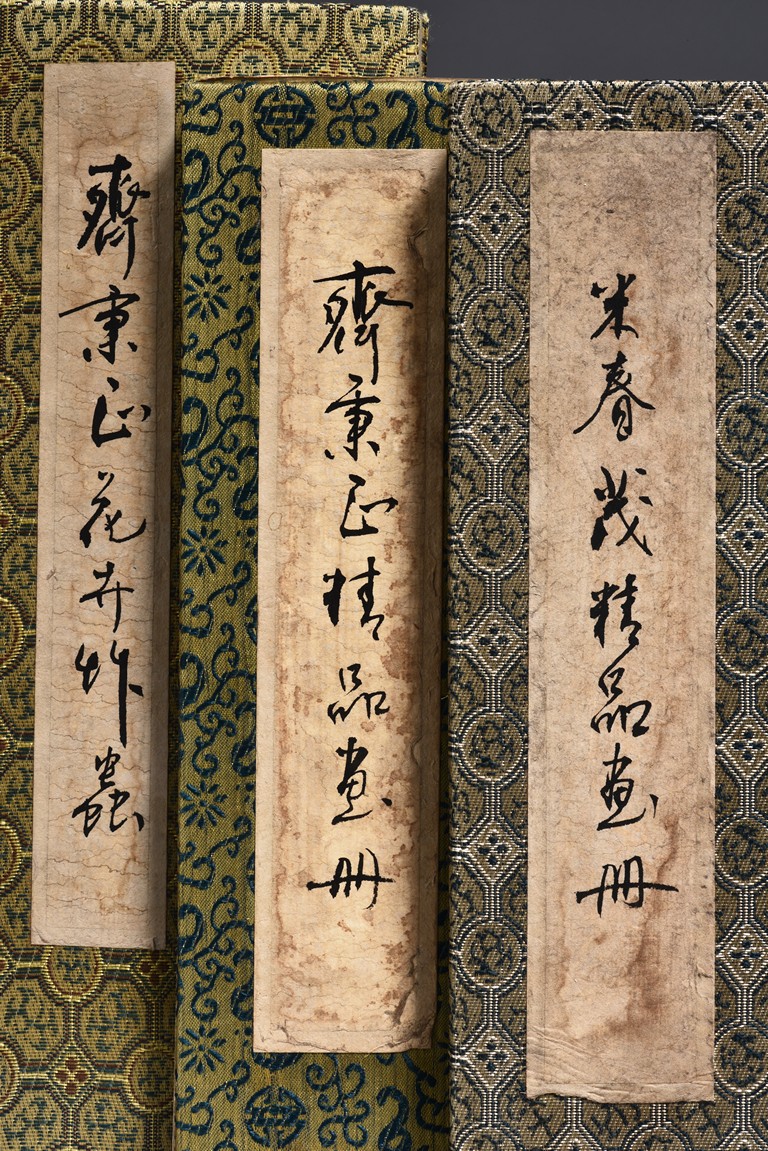 米春茂精品畫冊
齊秉正精品畫冊
齊秉正花卉艸蟲